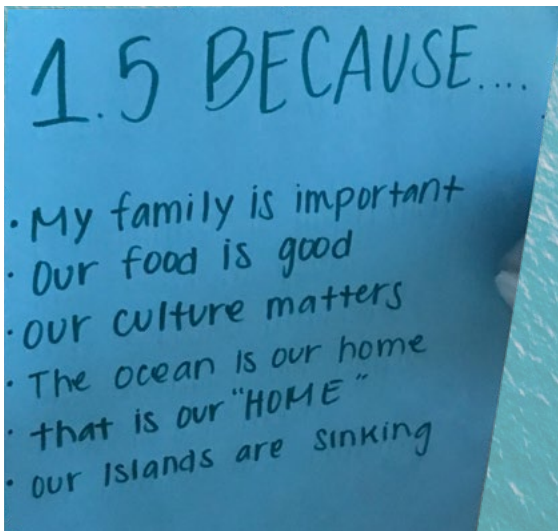 1.5 BECAUSE....
· My family is important
· Our food is good
· our culture matters
· The ocean is our home
· that is our "HOME"
· our Islands are sinking